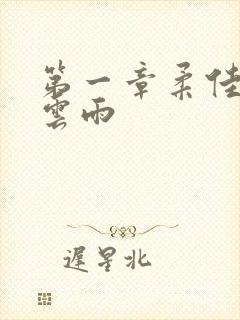 第一章柔佳
雲雨
遲星北